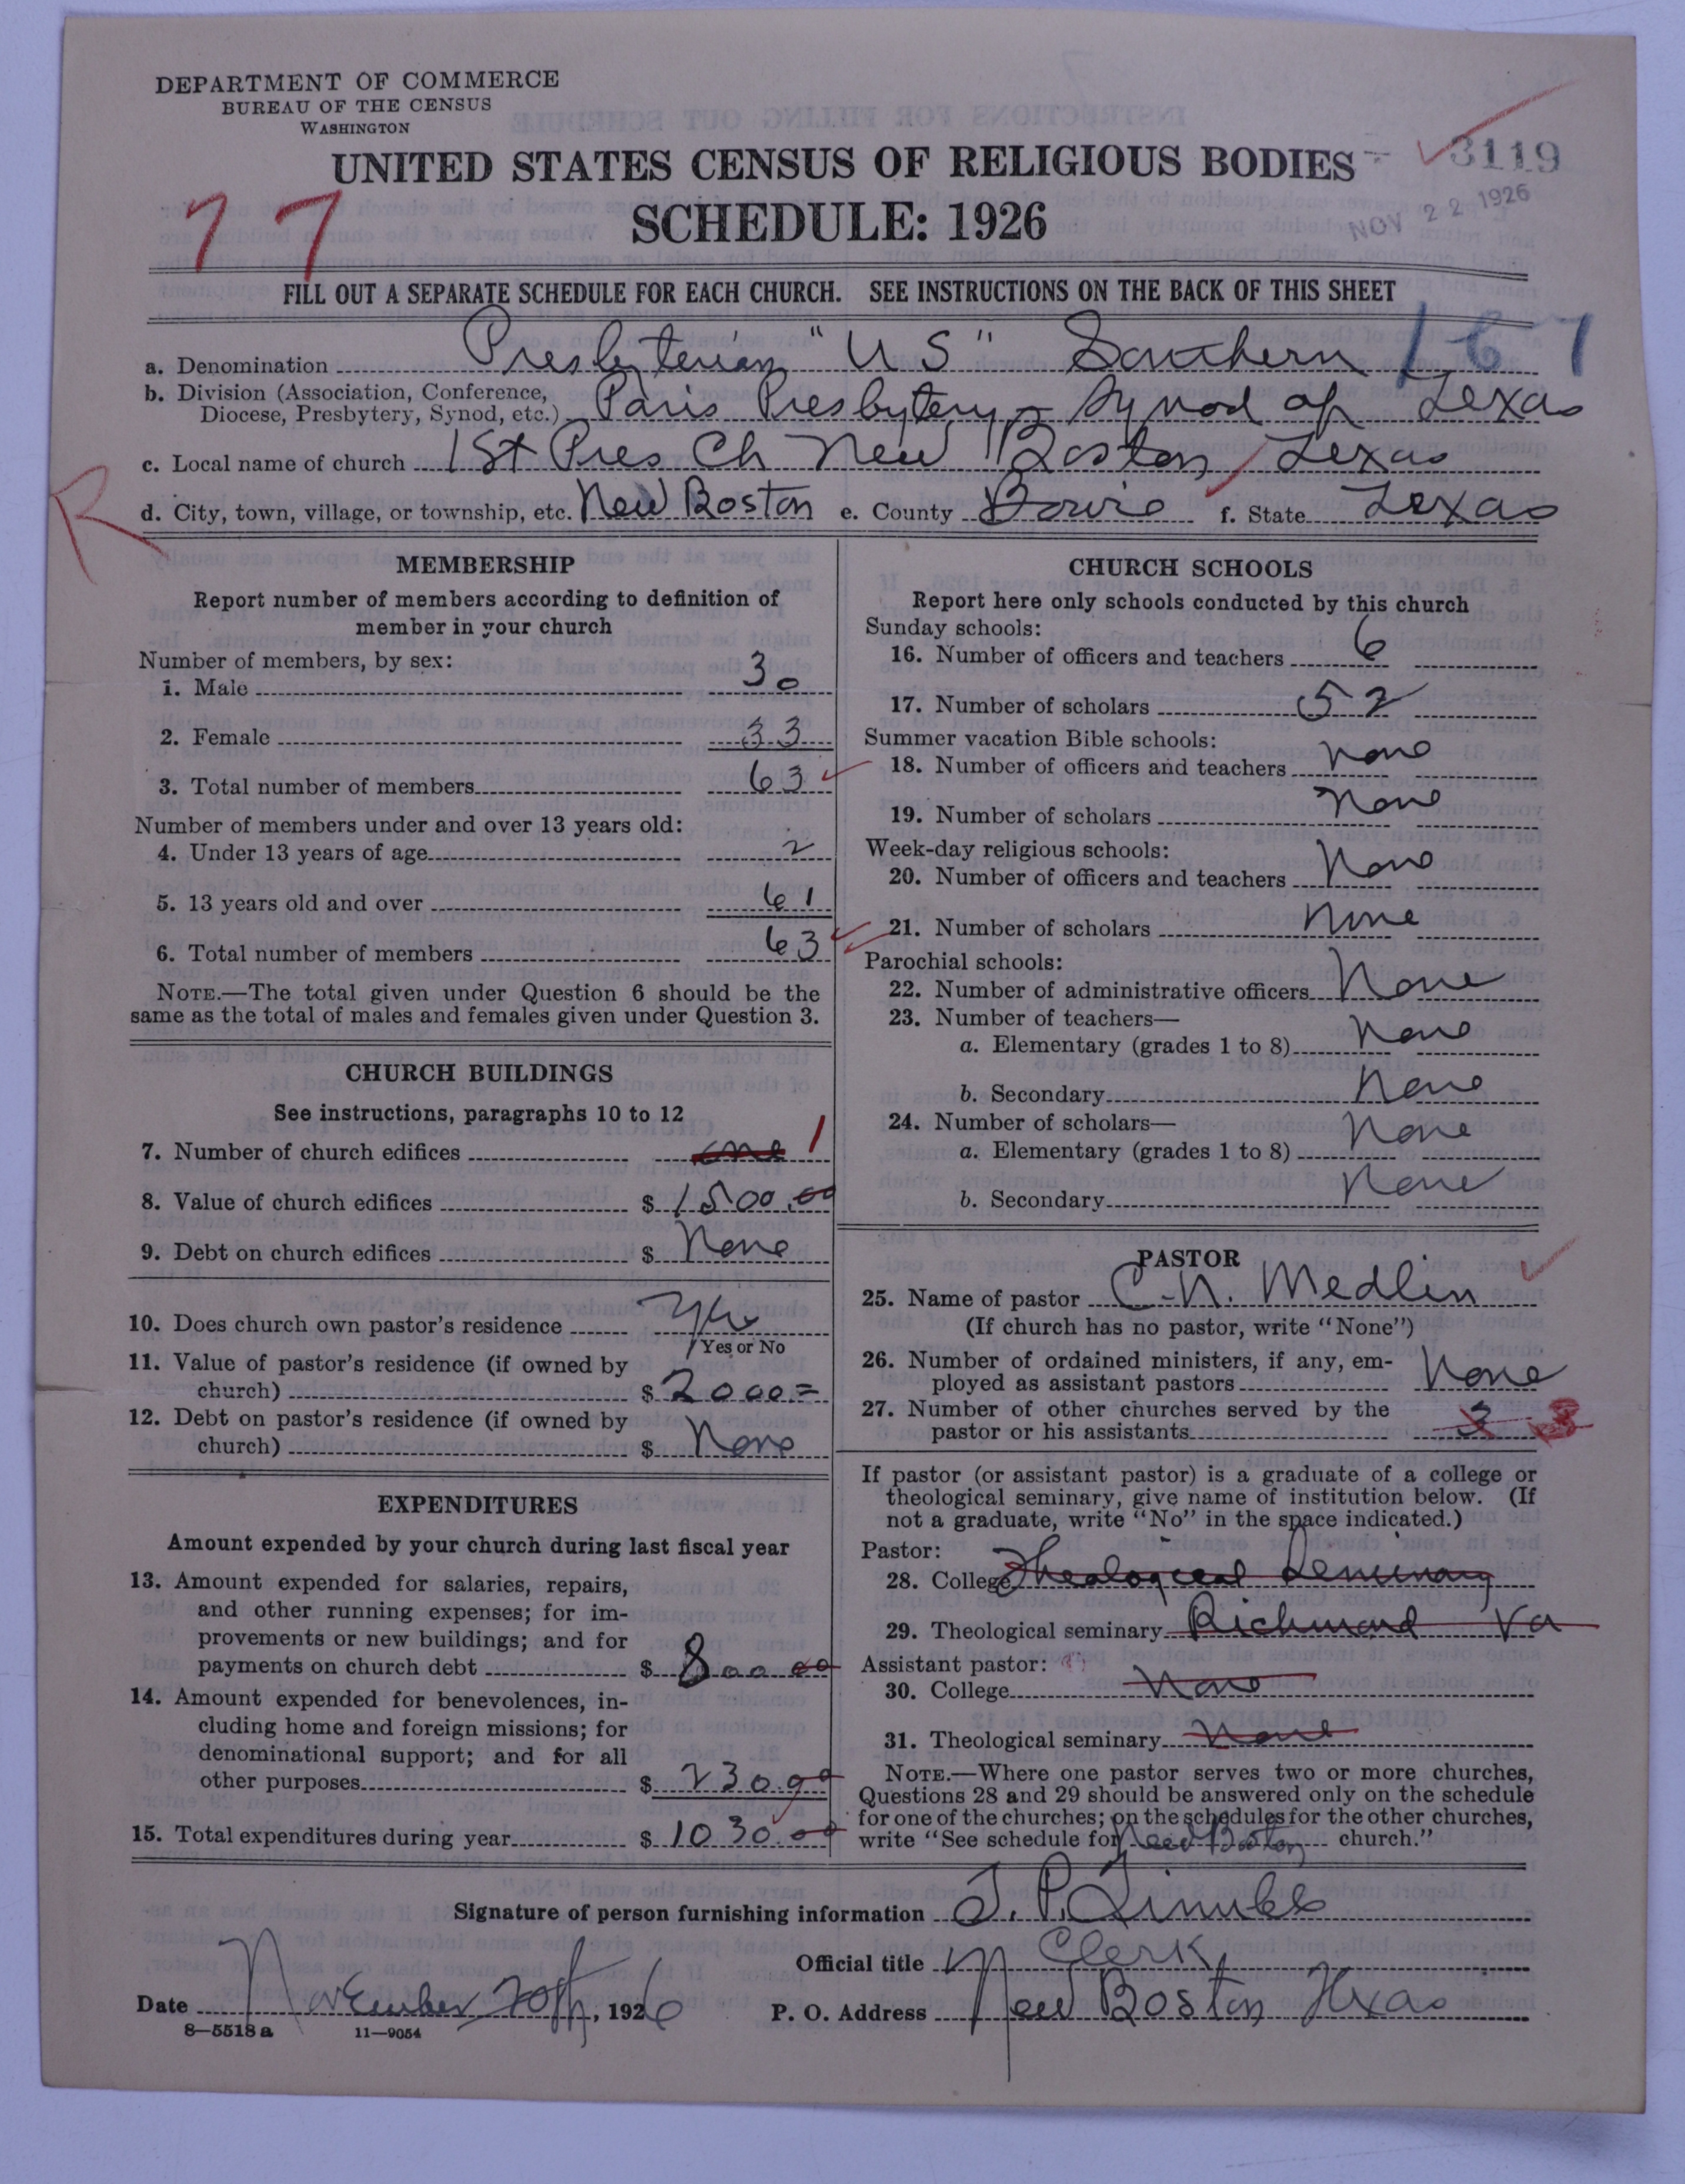 DEPARTMENT OF COMMERCE
BUREAU OF THE CENSUS
WASHINGTON
UNITED STATES CENSUS OF RELIGIOUS BODIES
3119
77
SCHEDULE: 1926
NOV 22 1926
FILL OUT A SEPARATE SCHEDULE FOR EACH CHURCH. SEE INSTRUCTIONS ON THE BACK OF THIS SHEET
167
a. Denomination Presbyterian "US" Southern
b. Division (Association, Conference,
Diocese, Presbytery, Synod, etc.) Paris Presbytery - Synod of Texas
c. Local name of church 1st Pres Ch New Boston, Texas
R
d. City, town, village, or township, etc. New Boston e. County Bowie f. State Texas
MEMBERSHIP
Report number of members according to definition of
member in your church
Number of members, by sex:
1. Male 30
2. Female 33
3. Total number of members 63
Number of members under and over 13 years old:
4. Under 13 years of age 2
5. 13 years old and over 61
6. Total number of members 63
NOTE.—The total given under Question 6 should be the
same as the total of males and females given under Question 3.
CHURCH BUILDINGS
See instructions, paragraphs 10 to 12
7. Number of church edifices one 1
8. Value of church edifices $ 1500.00
9. Debt on church edifices $ None
10. Does church own pastor's residence Yes
Yes or No
11. Value of pastor's residence (if owned by
church) $ 2000=
12. Debt on pastor's residence (if owned by
church) $ None
EXPENDITURES
Amount expended by your church during last fiscal year
13. Amount expended for salaries, repairs,
and other running expenses; for im-
provements or new buildings; and for
payments on church debt $ 800 00
14. Amount expended for benevolences, in-
cluding home and foreign missions; for
denominational support; and for all
other purposes $ 230.00
15. Total expenditures during year $ 1030.00
CHURCH SCHOOLS
Report here only schools conducted by this church
Sunday schools:
16. Number of officers and teachers 6
17. Number of scholars 52
Summer vacation Bible schools:
18. Number of officers and teachers None
19. Number of scholars None
Week-day religious schools:
20. Number of officers and teachers None
21. Number of scholars None
Parochial schools:
22. Number of administrative officers None
23. Number of teachers—
a. Elementary (grades 1 to 8) None
b. Secondary None
24. Number of scholars—
a. Elementary (grades 1 to 8) None
b. Secondary None
PASTOR
25. Name of pastor C.N. Medlin
(If church has no pastor, write "None")
26. Number of ordained ministers, if any, em-
ployed as assistant pastors None
27. Number of other churches served by the
pastor or his assistants 3 3
If pastor (or assistant pastor) is a graduate of a college or
theological seminary, give name of institution below. (If
not a graduate, write "No" in the space indicated.)
Pastor:
28. College Theological Seminary
29. Theological seminary Richmond Va
Assistant pastor:
30. College None
31. Theological seminary None
NOTE.—Where one pastor serves two or more churches,
Questions 28 and 29 should be answered only on the schedule
for one of the churches; on the schedules for the other churches,
write "See schedule for New Boston church."
Signature of person furnishing information J. P.
Official title Clerk
Date November 20th, 1926 P. O. Address New Boston Texas
8—5518 a 11—9054